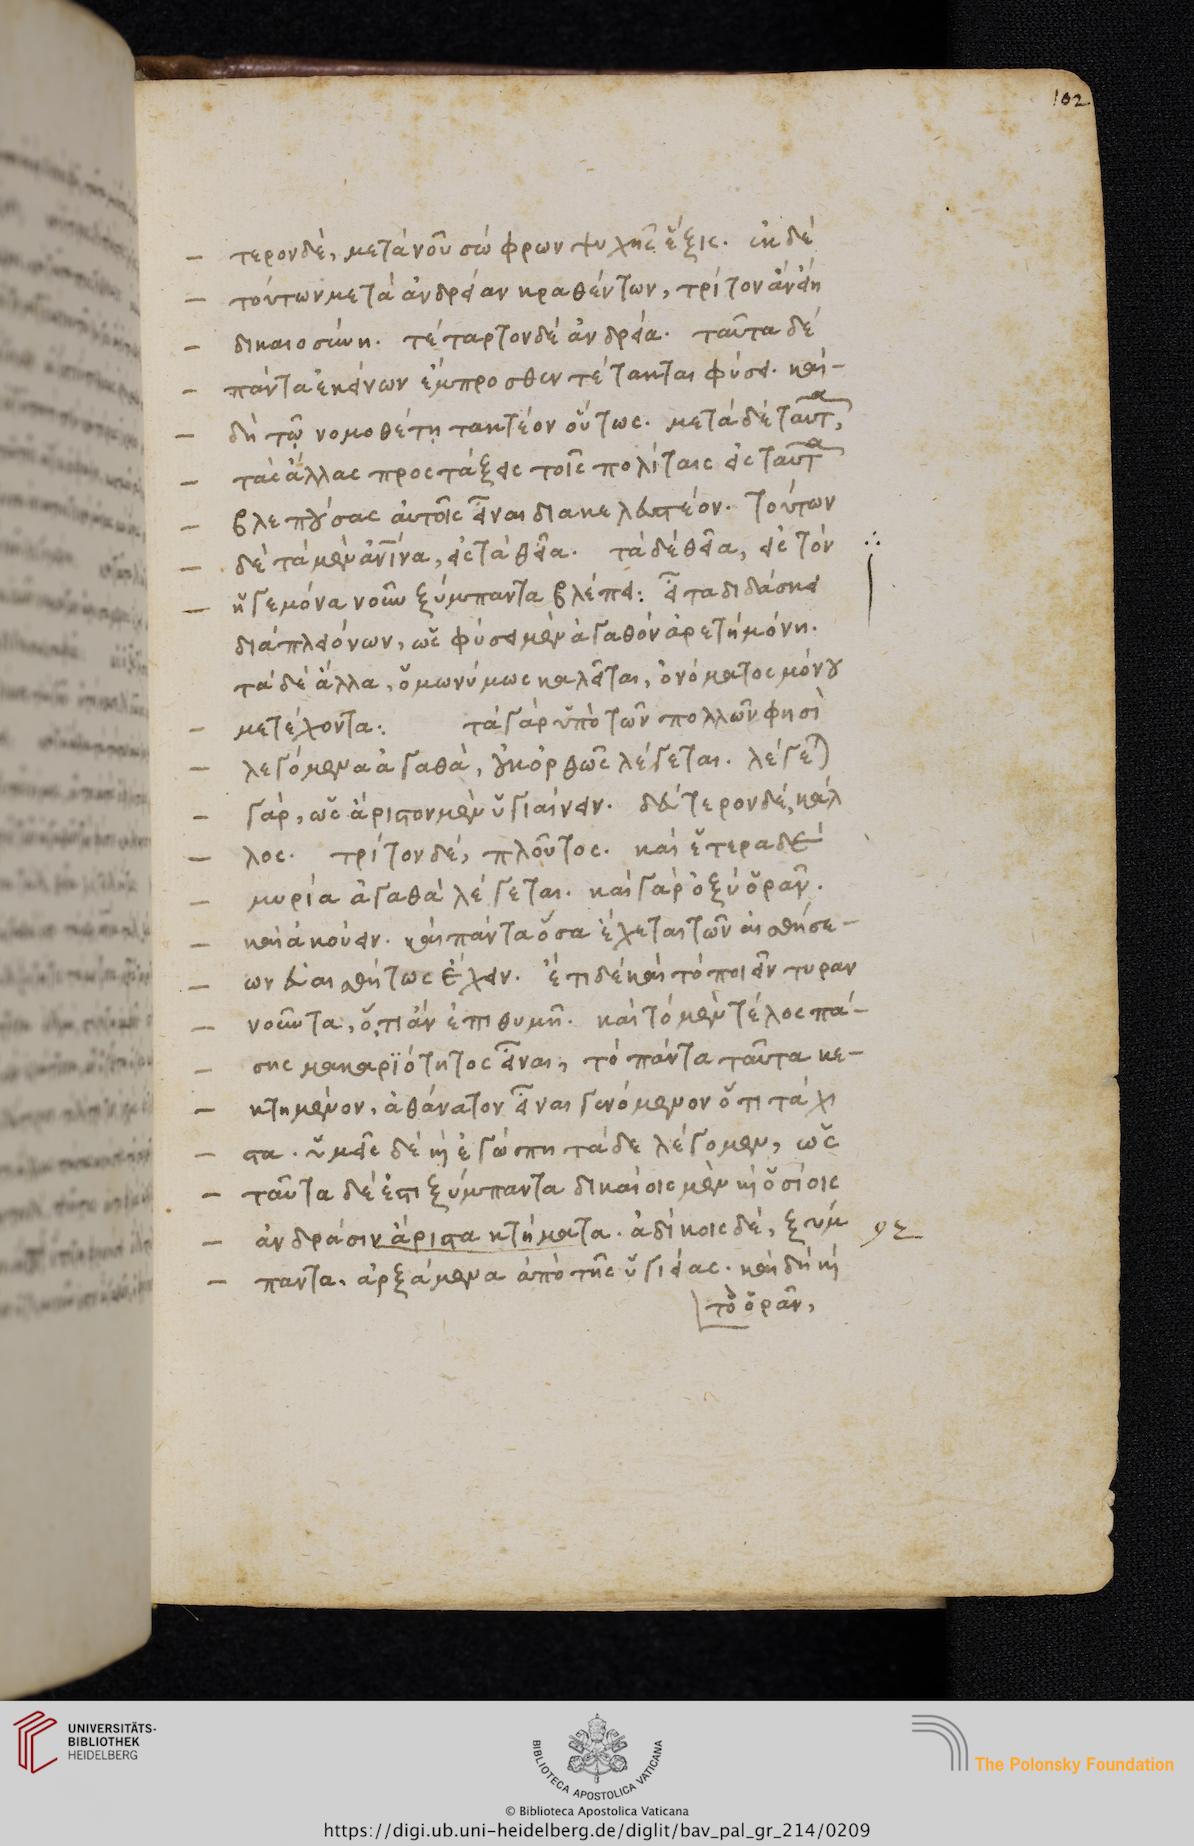 102
τερον δὲ, μετὰ νοῦ σώφρων ψυχῆς ἕξις. ἐκ δὲ
τούτων μετὰ ἀνδρείαν κραθέντων, τρίτον ἂν εἴη
δικαιοσύνη. τέταρτον δὲ ἀνδρεία. ταῦτα δὲ
πάντα ἐκείνων ἔμπροσθεν τέτακται φύσει. καὶ
δὴ τῷ νομοθέτῃ τακτέον οὕτως. μετὰ δὲ ταῦτα,
τὰς ἄλλας προστάξεις τοῖς πολίταις εἰς ταῦτα
βλεπούσας αὐτοῖς εἶναι διακελευστέον. τούτων
δὲ τὰ μὲν ἀνῖνα, εἰς τὰ θεῖα. τὰ δὲ θεῖα, εἰς τὸν
ἡγεμόνα νοῦν ξύμπαντα βλέπει: εἶτα διδάσκει
διὰ πλειόνων, ὡς φύσει μὲν ἀγαθὸν ἀρετὴ μόνη.
τὰ δὲ ἄλλα, ὁμωνύμως καλεῖται, ὀνόματος μόνου
μετέχοντα: τὰ γὰρ ὑπὸ τῶν πολλῶν φησὶ
λεγόμενα ἀγαθὰ, οὐκ ὀρθῶς λέγεται. λέγεται
γὰρ, ὡς ἄριστον μὲν ὑγιαίνειν. δεύτερον δὲ, κάλ
λος. τρίτον δὲ, πλοῦτος. καὶ ἕτερα δὲ
μυρία ἀγαθὰ λέγεται. καὶ γὰρ ὀξὺ ὁρᾶν.
καὶ ἀκούειν. καὶ πάντα ὅσα ἔχεται τῶν αἰσθήσε-
ων εὐαισθήτως ἔχειν. ἔτι δὲ καὶ τὸ ποιεῖν τυραν
νοῦντα, ὅ,τι ἂν ἐπιθυμῇ. καὶ τὸ μὲν τέλος πά-
σης μακαριότητος εἶναι, τὸ πάντα ταῦτα κε-
κτημένον, ἀθάνατον εἶναι γενόμενον ὅτι τάχι
στα. ὑμεῖς δὲ κἠ ἐγώ που τάδε λέγομεν, ὡς
ταῦτα δέ ἐστι ξύμπαντα δικαίοις μὲν κὴ ὁσίοις
ἀνδράσιν ἄριστα κτήματα. ἀδίκοις δὲ, ξύμ
παντα. ἀρξάμενα ἀπὸ τῆς ὑγιείας. καὶ δὴ κὴ
τὸ ὁρᾶν,
UNIVERSITÄTS-
BIBLIOTHEK
HEIDELBERG
BIBLIOTECA APOSTOLICA VATICANA
The Polonsky Foundation
© Biblioteca Apostolica Vaticana
https://digi.ub.uni-heidelberg.de/diglit/bav_pal_gr_214/0209